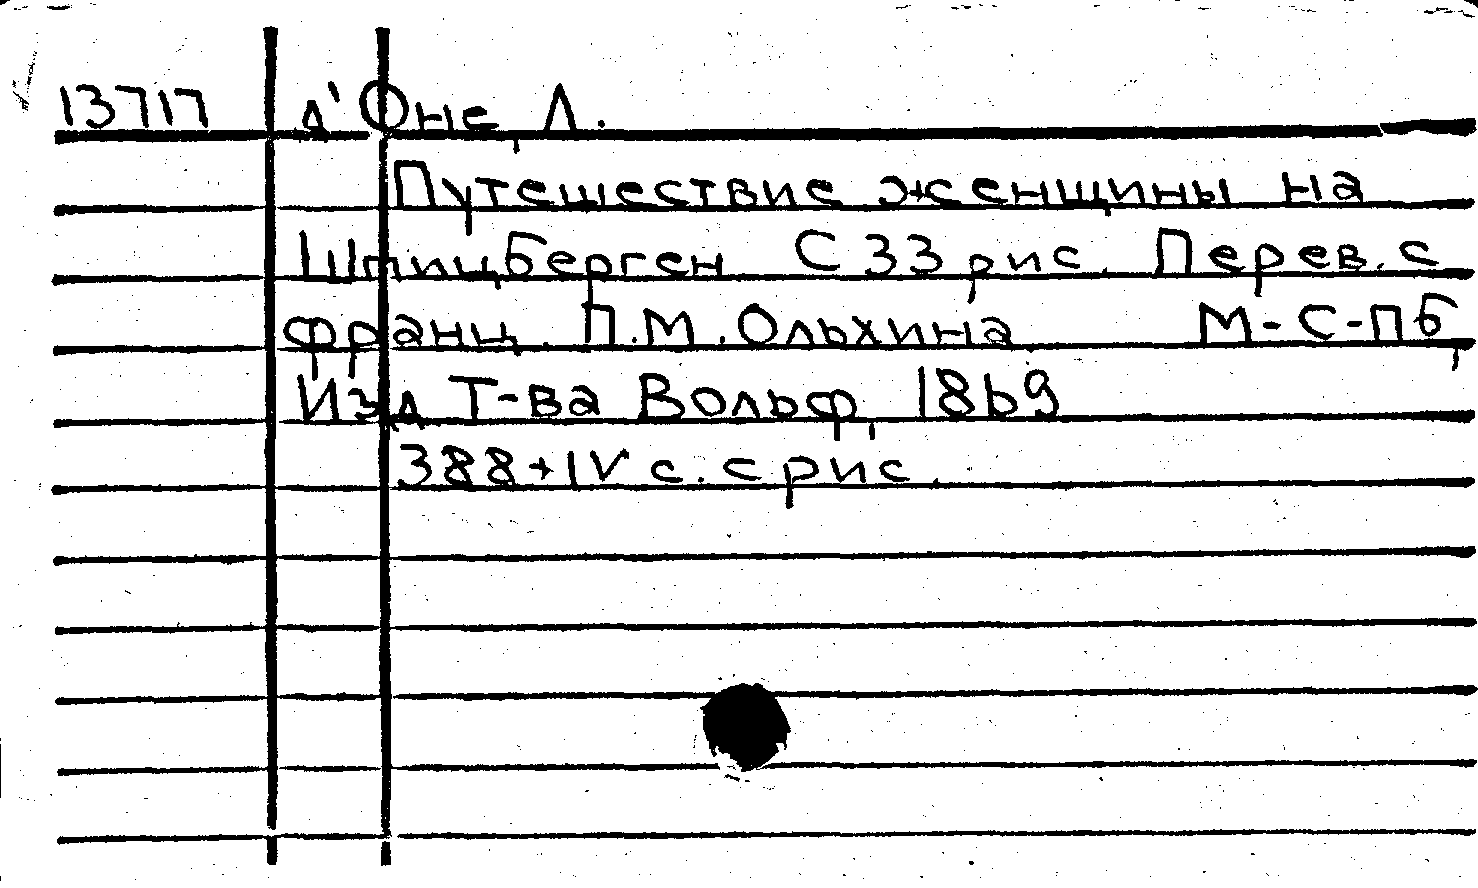 13717 д'Оне, Л.
Путешествие женщины на
Шпицберген С 33 рис. Перев. с
франц. П.М. Ольхина М-С-Пб,
Изд Т-ва Вольф, 1869
388+IV с. с рис.